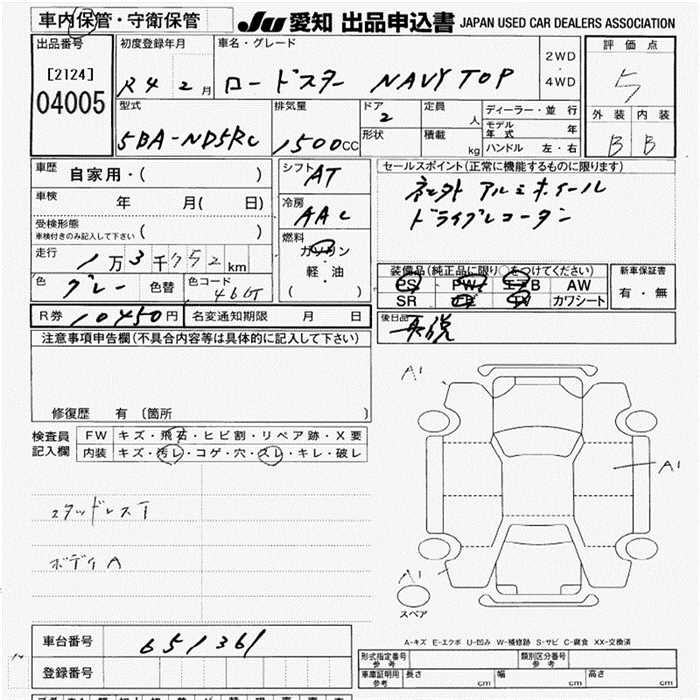 車内保管・守衛保管 JU 愛知 出品申込書 JAPAN USED CAR DEALERS ASSOCIATION
出品番号 初度登録年月 車名・グレード 2WD・4WD 評価点
[2124] R4 2月 ロードスター NAVY TOP 5
04005 型式 排気量 ドア 定員 ディーラー・並行 外装 内装
5BA-ND5RC 1500CC 2 人 モデル年式 年 B B
形状 積載 kg ハンドル 左・右
車歴 自家用・( ) シフト AT セールスポイント(正常に機能するものに限ります)
車検 年 月( 日) 冷房 AAC 社外アルミホイール
受検形態 車検付きのみ記入して下さい ( ) ドライブレコーダー
走行 1万3千752km 燃料 ガソリン・軽・油 ( )
装備品(純正品に限り○をつけてください) 新車保証書
色 グレー 色替 色コード 46G PS PW エアB AW 有・無
SR TV カワシート
R券 10450円 名変通知期限 月 日 後日品
注意事項申告欄(不具合内容等は具体的に記入して下さい)
修復歴 有〔箇所 〕
検査員記入欄 FW キズ・飛石・ヒビ割・リペア跡・X要
内装 キズ・汚レ・コゲ・穴・スレ・キレ・破レ
A1
A1
スタッドレスT
ボディA
A1
スペア
A-キズ E-エクボ U-凹み W-補修跡 S-サビ C-腐食 XX-交換済
車台番号 651361
登録番号
形式指定番号 参考 類別区分番号 参考
車庫証明用 参考 長さ cm 幅 cm 高さ cm